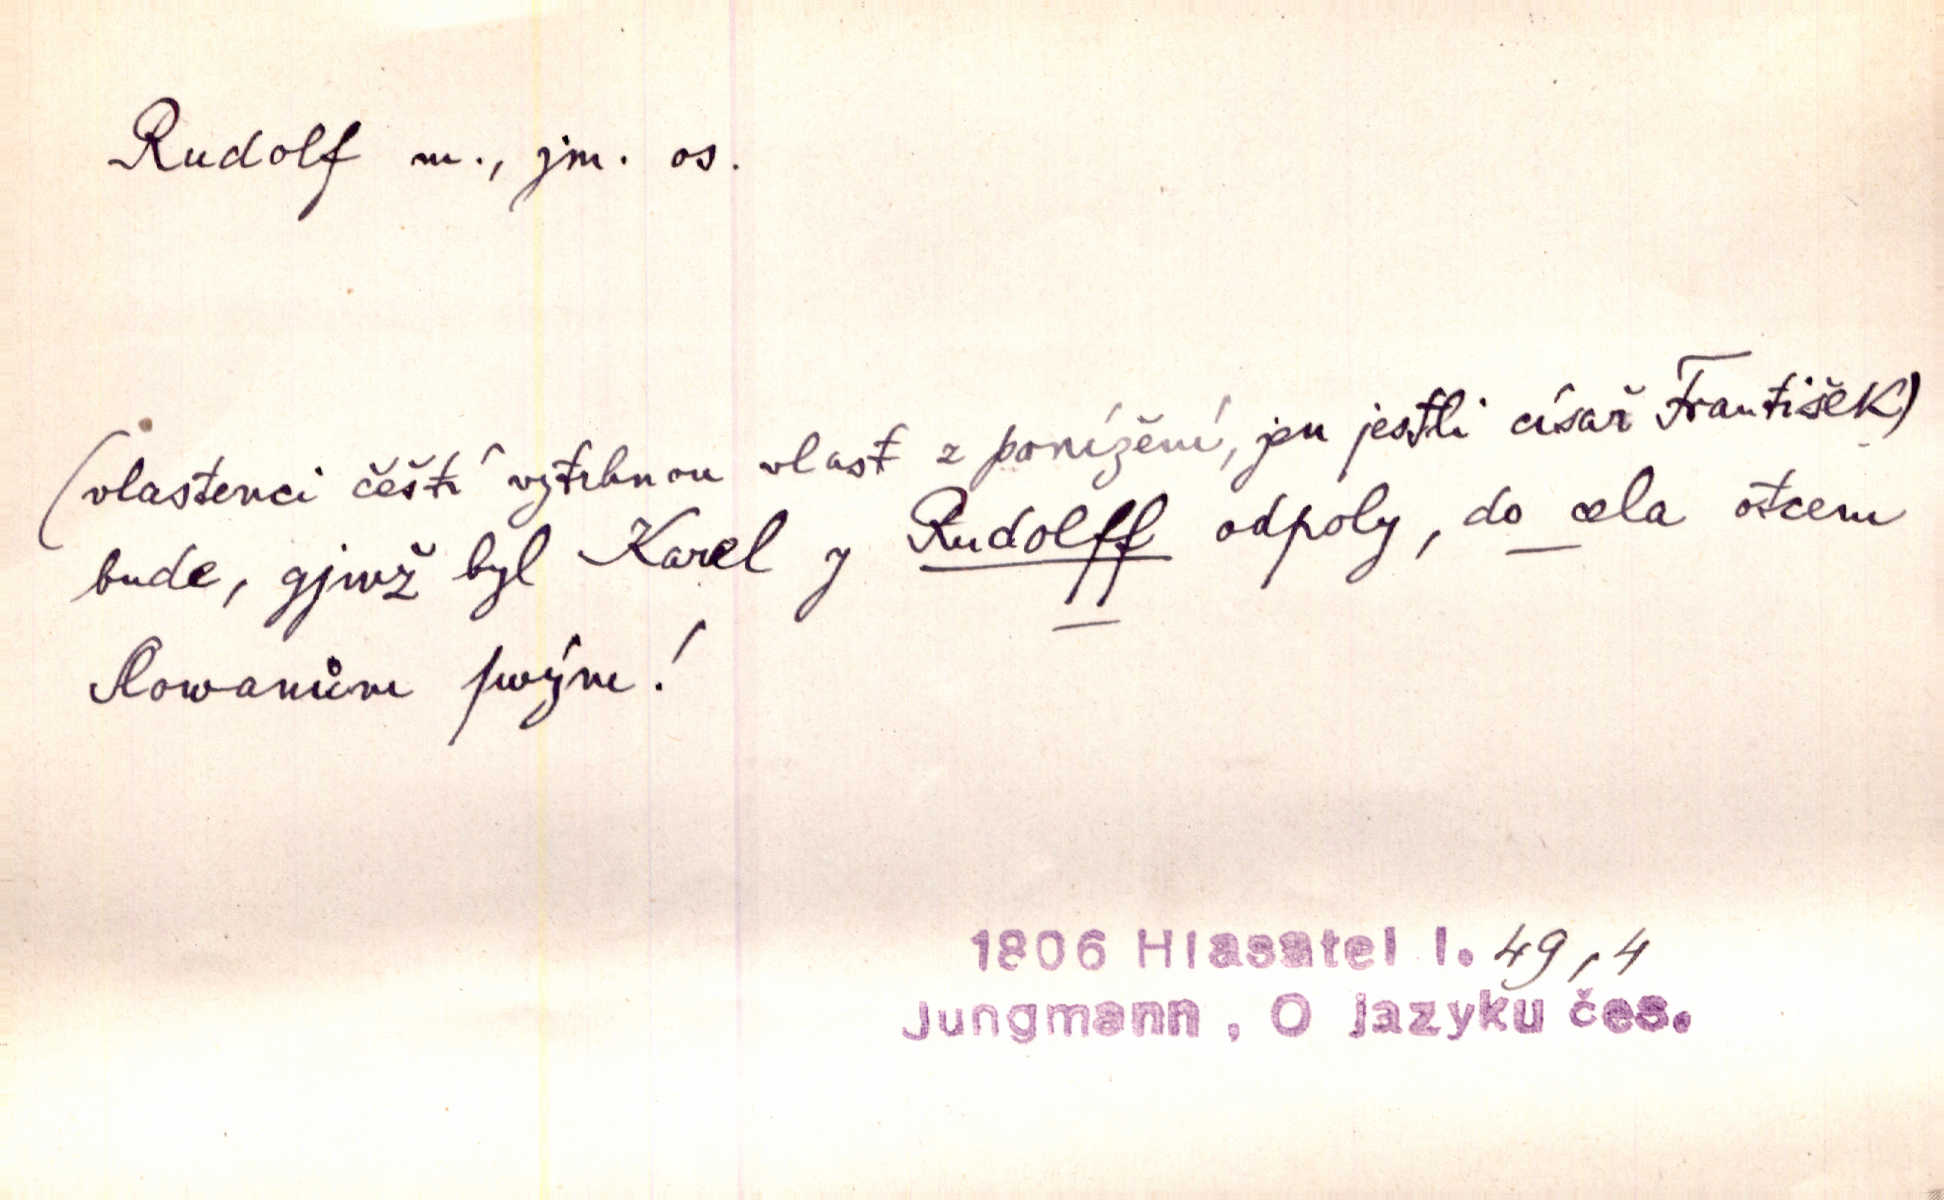 Rudolf m., jm. os.
(vlastenci čeští vytrhnou vlast z ponížení, jen jestli císař František)
bude, gjmž byl Karel y Rudolff odpoly, do cela otcem
Slowanům swým!
1806 Hlasatel I. 49,4
Jungmann, O jazyku čes.